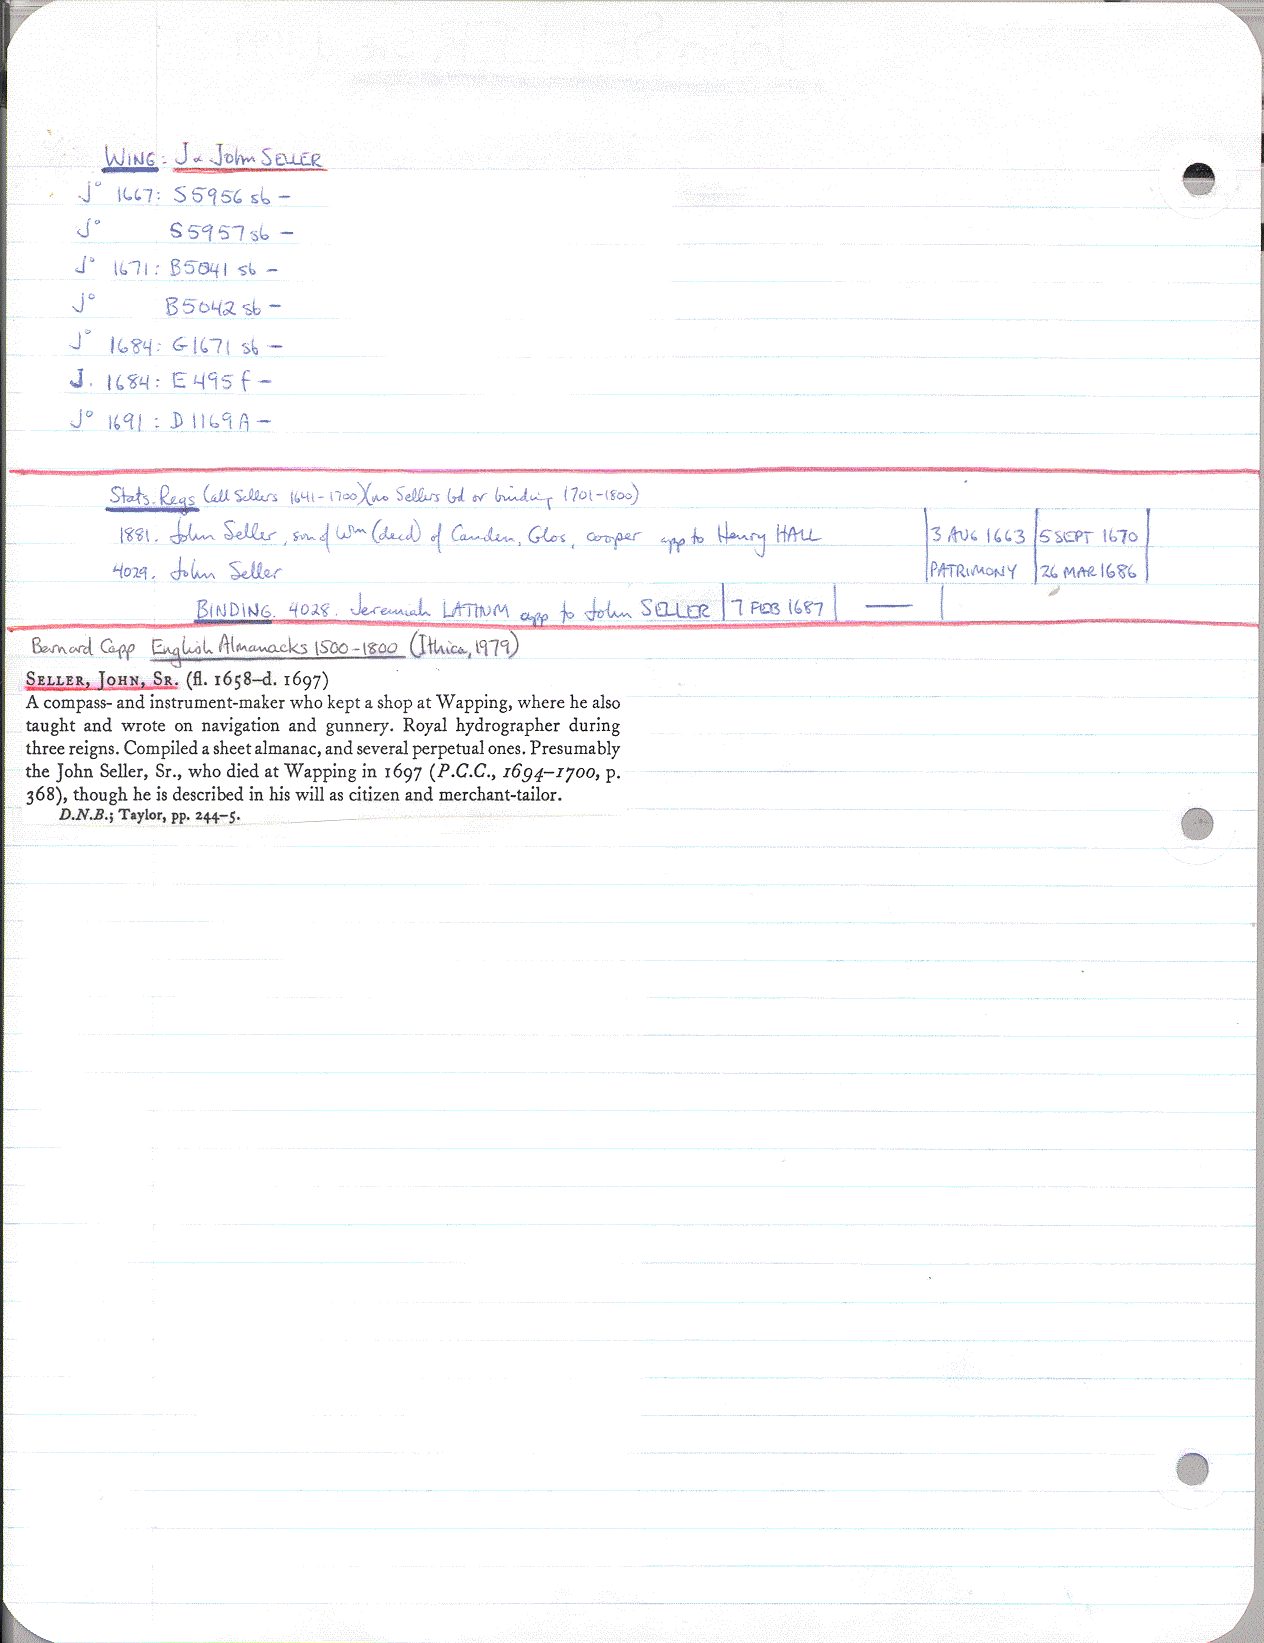 WING: J & John SELLER
J° 1667: S5956 sb –
J° S5957 sb –
J° 1671: B5041 sb –
J° B5042 sb –
J° 1684: G1671 sb –
J. 1684: E495 f –
J° 1691: D1169A –
Stats. Regs (all Sellers 1641–1700)(no Sellers bd or binding 1701–1800)
1881. John Seller, son of Wm (decd) of Camden, Glos, cooper app to Henry HALL 3 AUG 1663 5 SEPT 1670
4029. John Seller PATRIMONY 26 MAR 1686
BINDING. 4028. Jeremiah LATINUM app to John SELLER 7 FEB 1687 —
Bernard Capp English Almanacks 1500–1800 (Ithica, 1979)
SELLER, JOHN, SR. (fl. 1658–d. 1697)
A compass- and instrument-maker who kept a shop at Wapping, where he also
taught and wrote on navigation and gunnery. Royal hydrographer during
three reigns. Compiled a sheet almanac, and several perpetual ones. Presumably
the John Seller, Sr., who died at Wapping in 1697 (P.C.C., 1694–1700, p.
368), though he is described in his will as citizen and merchant-tailor.
D.N.B.; Taylor, pp. 244–5.